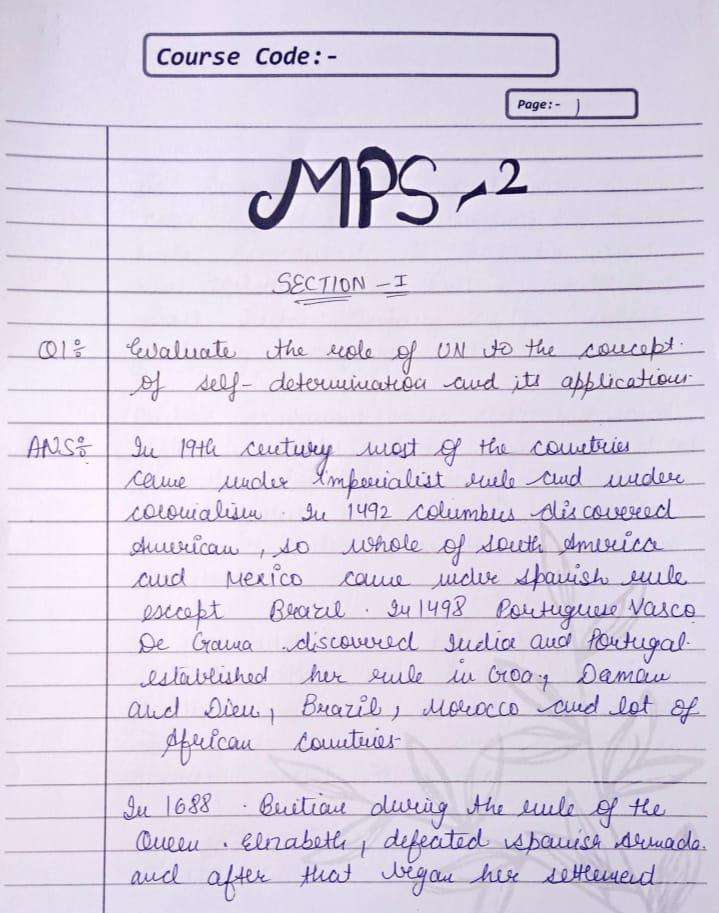 Course Code:-
Page:- 1
MPS-2
SECTION - I
Q1: Evaluate the role of UN to the concept
of self-determination and its application.
ANS: In 19th century most of the countries
came under Imperialist rule and under
colonialism. In 1492 Columbus discovered
American, so whole of South America
and Mexico came under Spanish rule
except Brazil. In 1498 Portuguese Vasco
De Gama discovered India and Portugal
established her rule in Goa, Daman
and Dieu, Brazil, Morocco and lot of
African countries
In 1688. Britian during the rule of the
Queen. Elizabeth, defeated spanish Armada.
and after that began her settlement